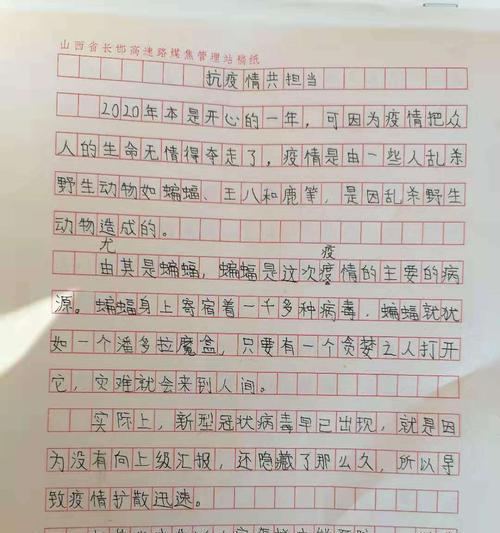 山西省长邯高速路煤焦管理站稿纸
抗疫情共担当
2020年本是开心的一年，可因为疫情把众
人的生命无情得夺走了，疫情是由一些人乱杀
野生动物如蝙蝠、王八和鹿等，是因乱杀野生
动物造成的。
尤 疫
由其是蝙蝠，蝙蝠是这次疫情的主要的病
源。蝙蝠身上寄宿着一千多种病毒，蝙蝠就犹
如一个潘多拉魔盒，只要有一个贪婪之人打开
它，灾难就会来到人间。
实际上，新型冠状病毒早已出现，就是因
为没有向上级汇报，还隐藏了那么久，所以导
致疫情扩散迅速。